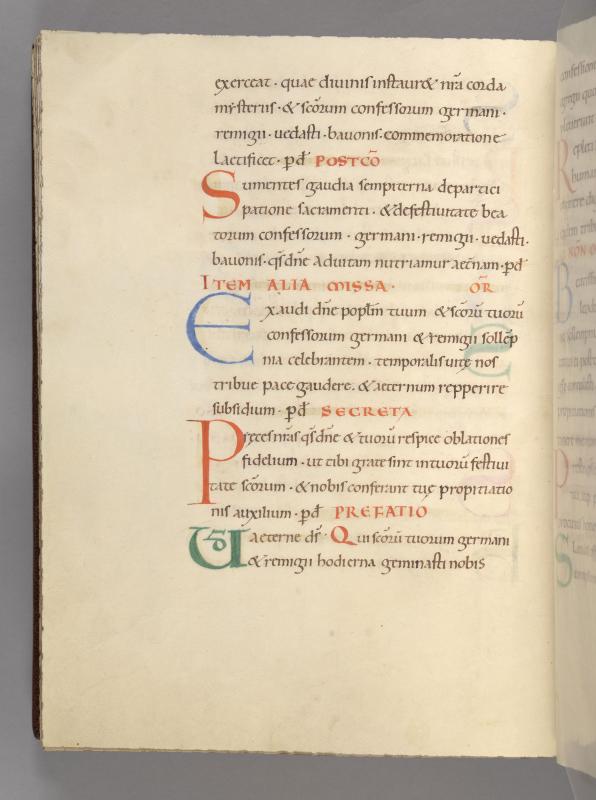 exerceat · quae diuinis instauret nr̄a corda
mysteriis · & sc̄orum confessorum germani ·
remigii · uedasti · bauonis · commemoratione
laetificet · p̄d̄ POSTCŌ
Sumentes gaudia sempiterna departici
patione sacramenti · & defestiuitate bea
torum confessorum · germani · remigii · uedasti ·
bauonis · qs̄ dn̄e Aduitam nutriamur aet̄nam · p̄d̄
ITEM ALIA MISSA · OR̄
Exaudi dn̄e popl̄m tuum & sc̄orū tuorū
confessorum germani & remigii sollēp
nia celebrantem · temporalis uitę nos
tribue pace gaudere · & aeternum repperire
subsidium · p̄d̄ SECRETA
Preces nr̄as qs̄ dn̄e & tuorū respice oblationes
fidelium · ut tibi gratę sint intuorū festiui
tate sc̄orum · & nobis conferant tuę propitiatio
nis auxilium · p̄d̄ PREFATIO
UD̄ aeterne ds̄ · Qui sc̄orū tuorum germani
& remigii hodierna geminasti nobis